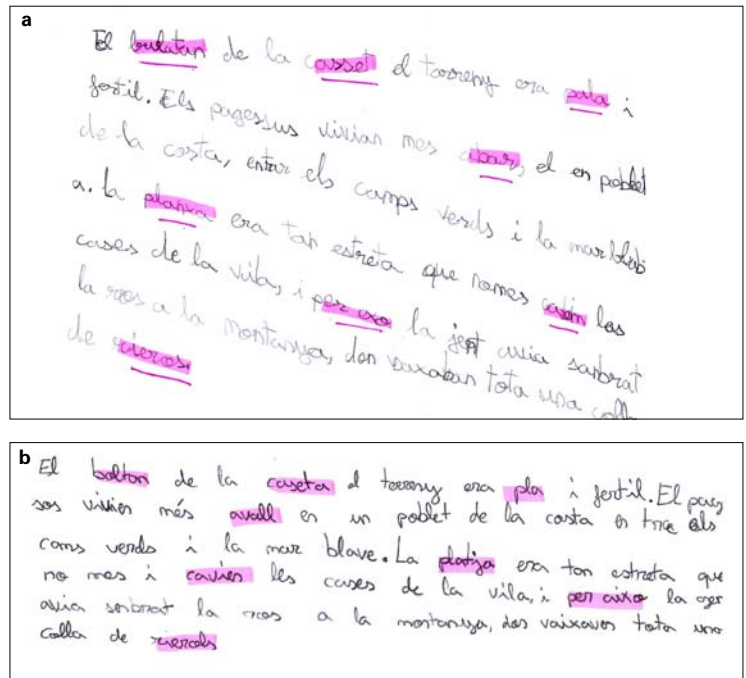 a
El bulatan de la casset el torreny era pala i
fertil. Els pagessus vivian mes abar, el en poblet
de la costa, entar els camps verds i la mar blab
a. la planxa era tan estreta que nomes casin las
cases de la vila, i per axo la jent avia sanbrat
la ros a la montanya, don saxaban tota una colla
de rieros.
b
El bolton de la caseta el torreny era pla i fertil. El pag
sos vivien més avall en un poblet de la costa en tre els
cams verds i la mar blave. La platja era ton estreta que
no mes i cavien les cases de la vila, i per aixo la
avia sonbrat la ros a la montanya, dos vaixaven tota una
colla de rierols